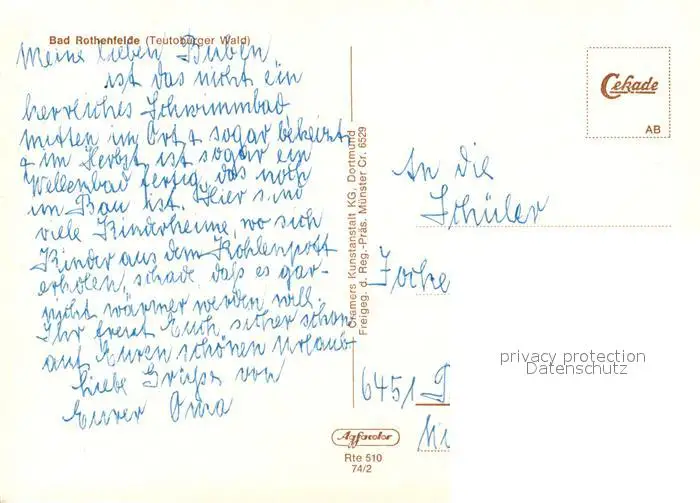 Bad Rothenfelde (Teutoburger Wald)
Meine lieben Buben
ist das nicht ein
herrliches Schwimmbad
mitten im Ort + sogar beheizt
+ im Herbst ist sogar ein
Wellenbad fertig, das noch
im Bau ist. Hier sind
viele Kinderheime, wo sich
Kinder aus dem Kohlenpott
erholen, schade, daß es gar-
nicht wärmer werden will.
Ihr freut Euch sicher schon
auf Euren schönen Urlaub
Liebe Grüße von
Eurer Oma
Cramers Kunstanstalt KG, Dortmund
Freigeg. d. Reg.-Präs. Münster Cr. 6529
Cekade
AB
An die
Schüler
Jocke
6451
privacy protection
Datenschutz
Agfacolor
Rte 510
74/2